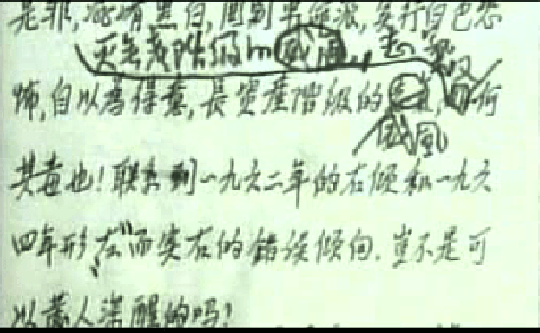 是非,混淆黑白,围剿革命派,实行白色恐
灭无产阶级的威风,志气
怖,自以為得意,長資產階級的
威風
何
其毒也!联系到一九六二年的右倾和一九六
四年形“左”而实右的错误倾向,豈不是可
以发人深醒的吗?